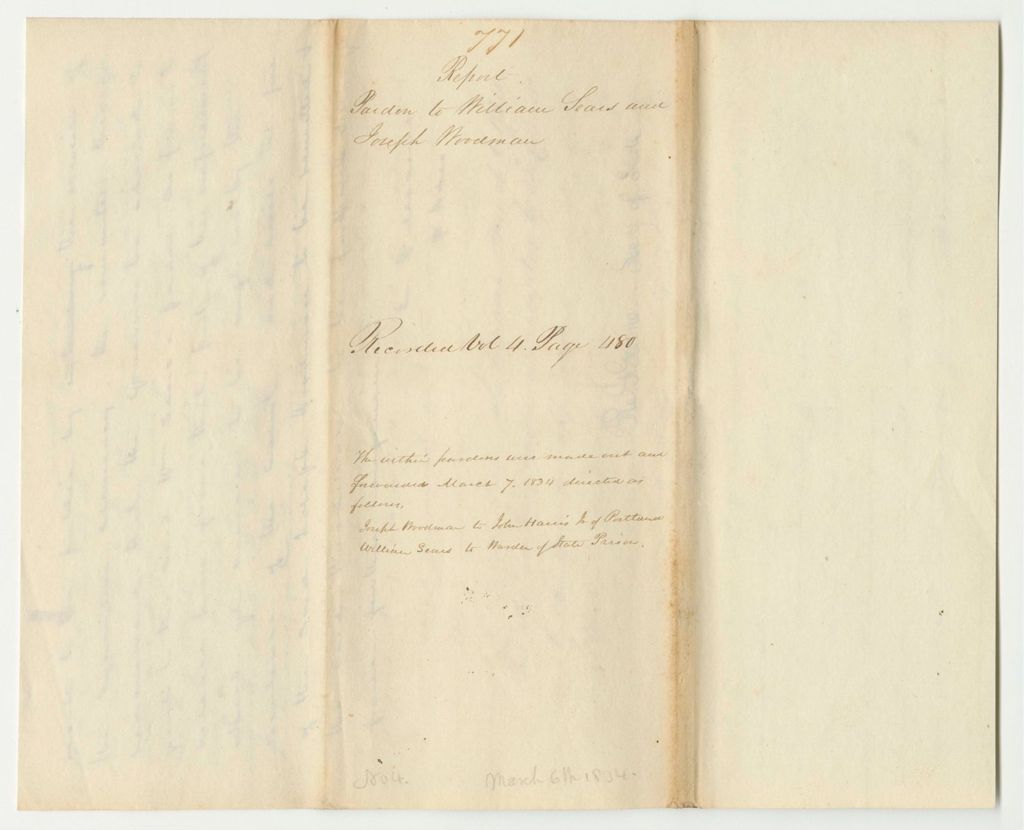 771
Report
Pardon to William Sears and
Joseph Woodman
Recorded Vol 4. Page 480
The within pardons were made out and
forwarded March 7. 1834 directed as
follows,
Joseph Woodman to John Harris Jr of Portland
William Sears to Warden of State Prison.
No 4. March 6th 1834.